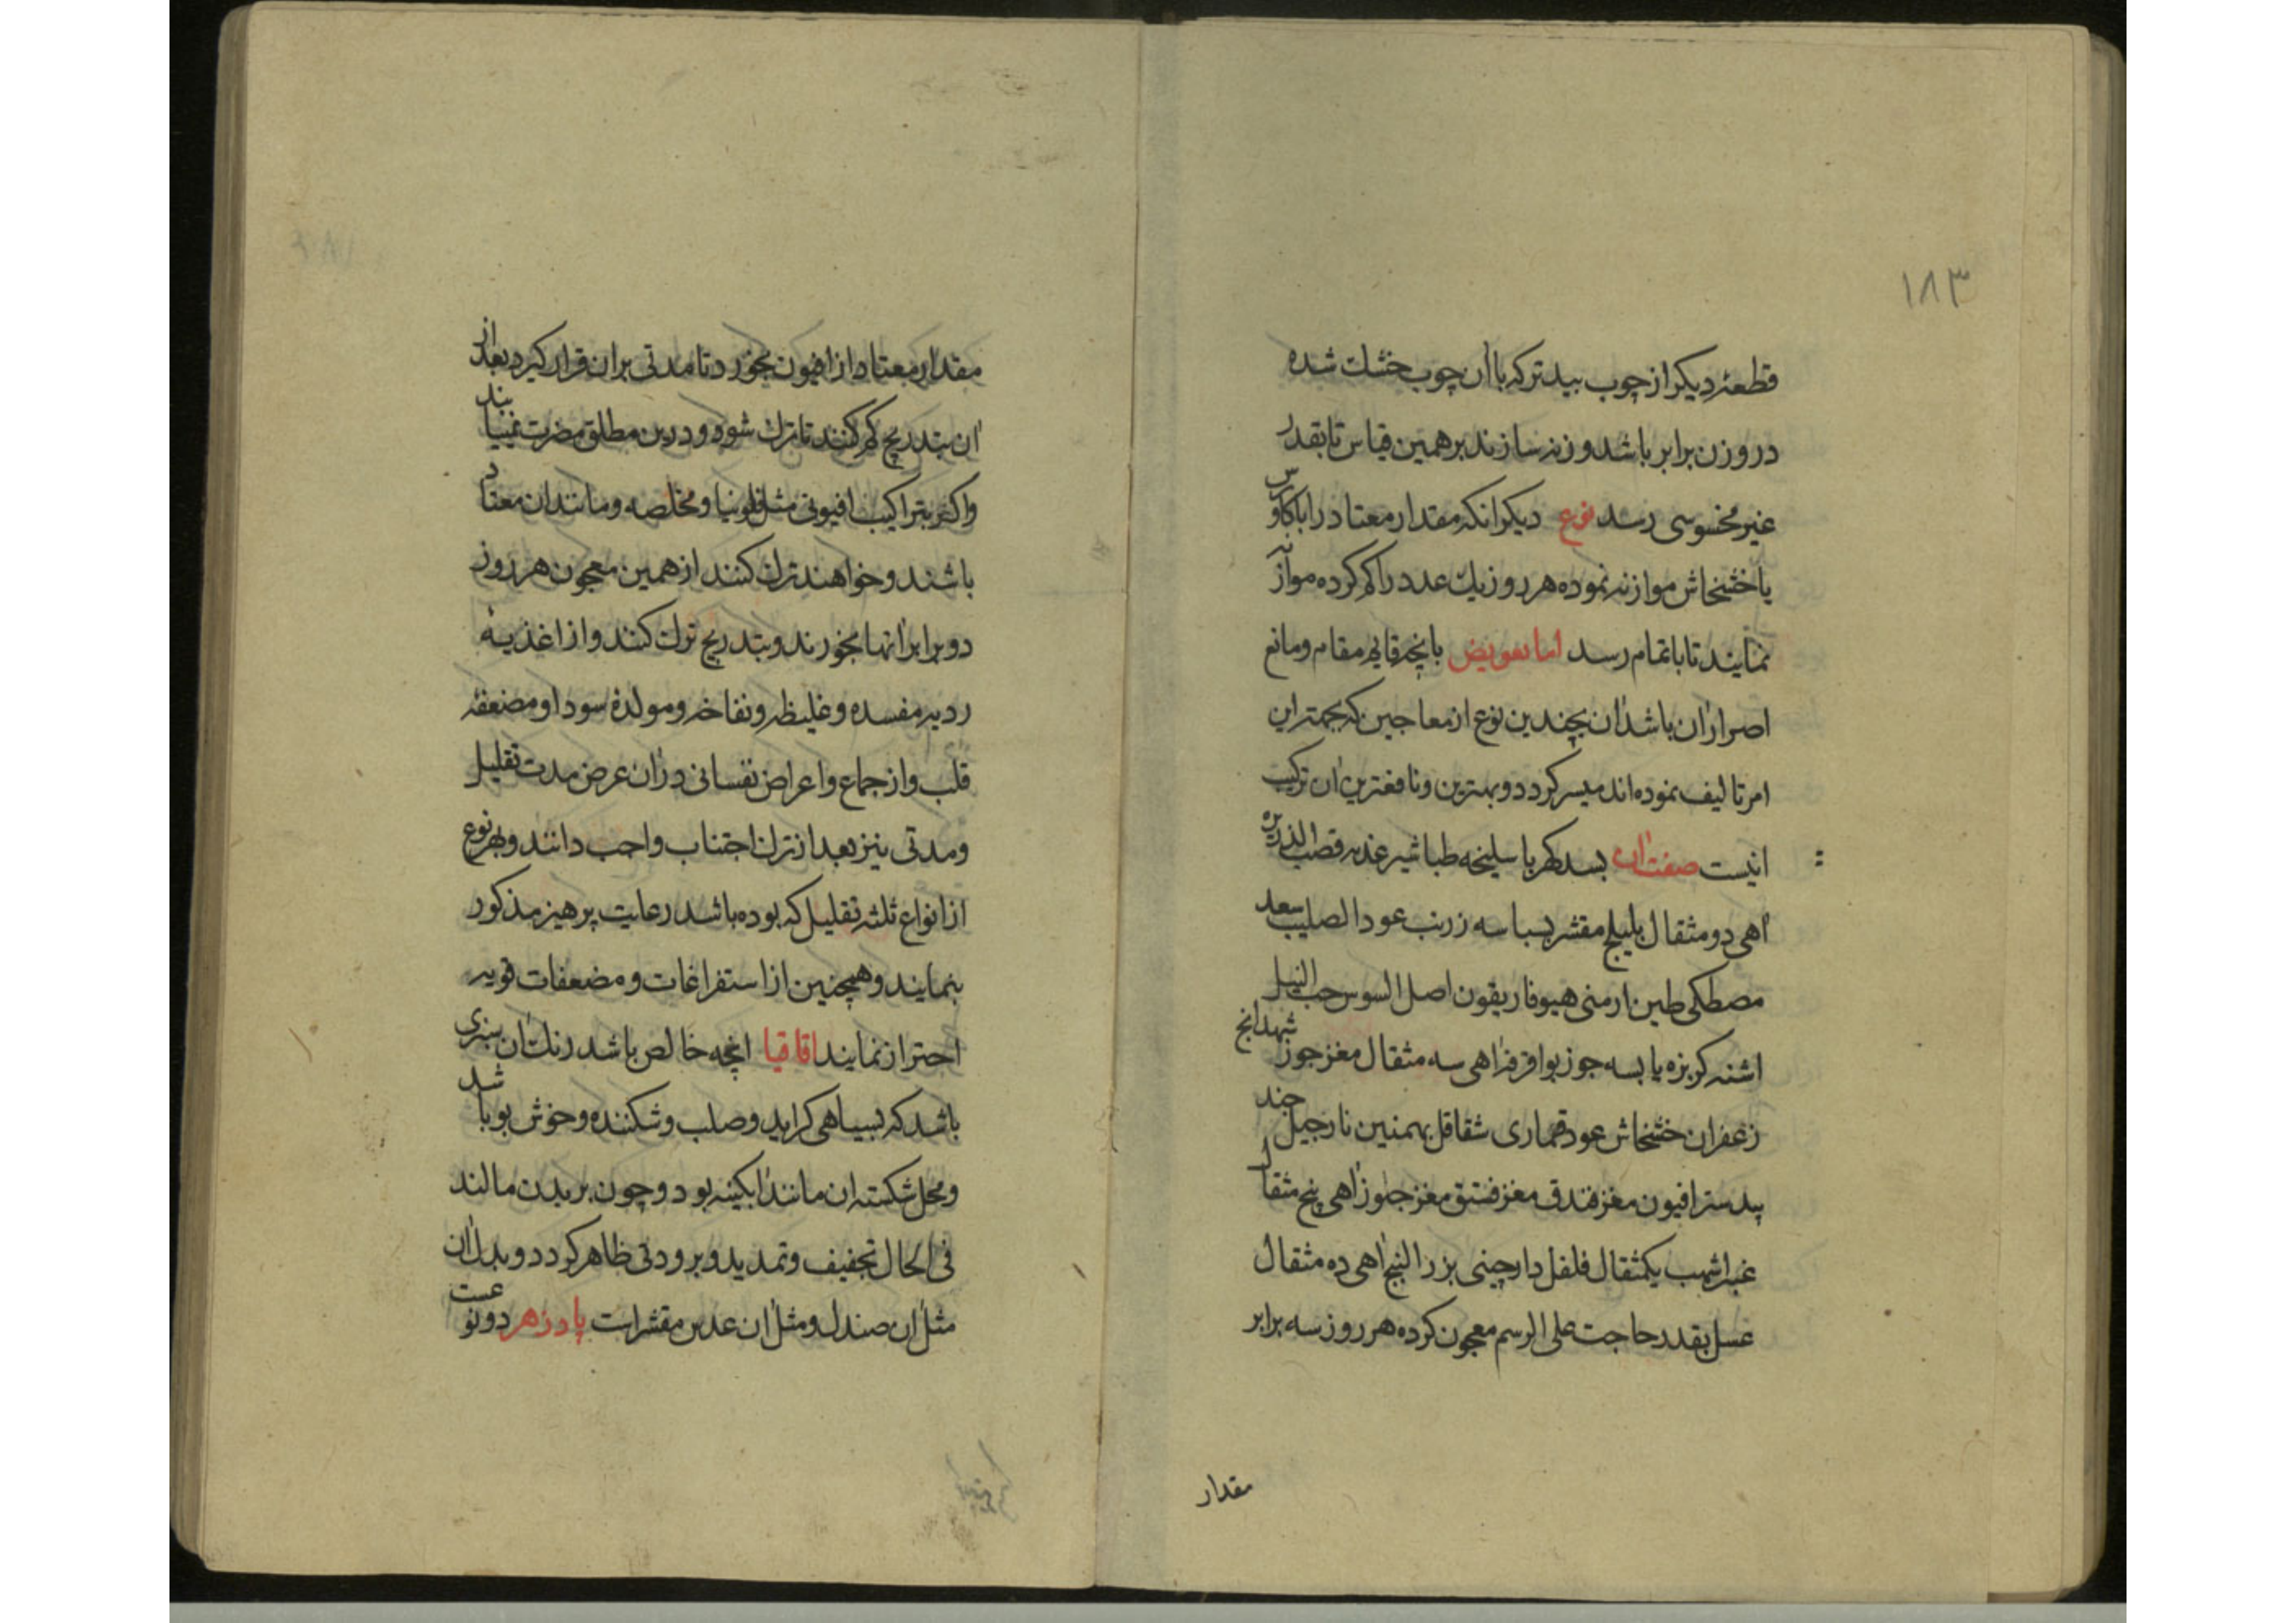 ۱۸۳
قطعهٔ دیکر از چوب بید تر که باآن چوب خشك شده
در وزن برابر باشد وزنه سازند برهمین قیاس تا بقدر
غیر محسوسی رسد نوع دیکر انکه مقدار معتاد را باکاورس
یا خشخاش موازنه نموده هر روز یك عدد را کم کرده موازنه
نمایند تا باتمام رسد اما تعویض بانچه قایم مقام و مانع
اصرار آن باشد آن بچندین نوع از معاجین که بجهت این
امر تالیف نموده اند میسر کردد و بهترین و نافعترین آن ترکیب
اینست صفت آن بسد کهربا سلیخه طباشیر غذبه قصب الذریره
آهی دو مثقال بلیلج مقشر بسباسه زرنب عود الصلیب سعد
مصطکی طین ارمنی هیوفاریقون اصل السوس حب النیل
اشنه کزبزه یابسه جوز بوا قرفه آهی سه مثقال مغز جوز شهدانج
زعفران خشخاش عود قماری شقاقل بهمنین نارجیل جند
بیدستر افیون مغز فندق مغز فستق مغز جلوز آهی پنج مثقال
عنبر اشهب یکمثقال فلفل دارچینی بزر البنج آهی ده مثقال
عسل بقدر حاجت علی الرسم معجون کرده هر روز سه برابر
مقدار
مقدار معتاد از افیون بخورد تا مدتی بران قرار کیرد بعد از
آن بتدریج کم کنند تا ترك شود و درین مطلق مضرت نمییابند
واکثر بتراکیب افیونی مثل فلونیا و مخلصه و مانند ان معتاد
باشند و خواهند ترك کنند از همین معجون هر روز
دو برابر آنها بخورند و بتدریج ترك کنند و از اغذیهٔ
ردیه مفسده و غلیظه و نفاخه و مولدهٔ سودا و مضعفه
قلب و از جماع و اعراض نفسانی در آن عرض مدت تقلیل
و مدتی نیز بعد از ترك اجتناب واجب دانند و بهر نوع
از انواع ثلثه تقلیل که بوده باشد رعایت پرهیز مذکور
بنمایند و همچنین از استفراغات و مضعفات قویه
احتراز نمایند اقاقیا انچه خالص باشد رنك آن سبزی
باشد که بسیاهی کراید و صلب و شکننده و خوش بو باشد
و محل شکسته ان مانند آبکینه بود و چون بر بدن مالند
فی الحال تجفیف و تمدید و برودتی ظاهر کردد و بدل آن
مثل آن صندل و مثل آن عدس مقشر است پادزهر دو نوعست